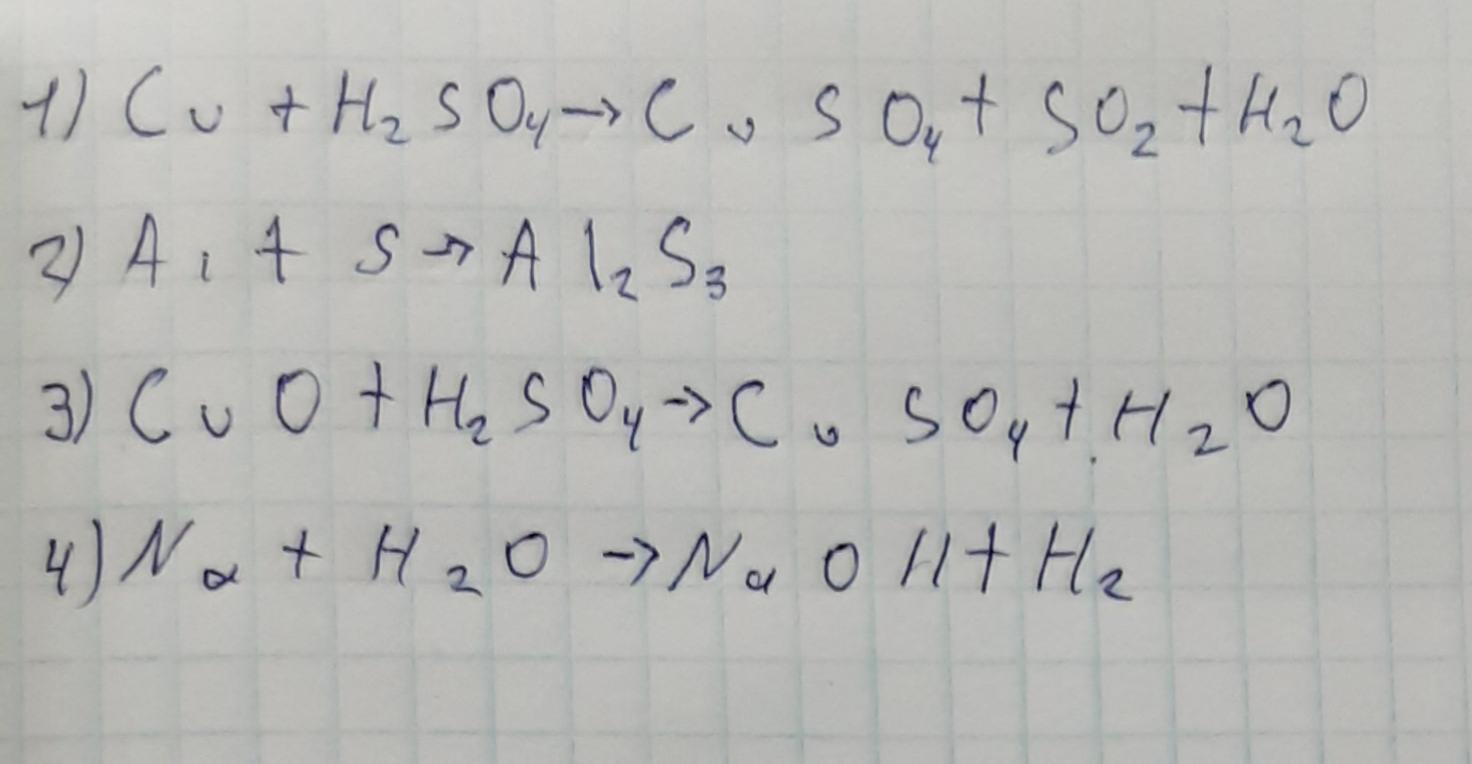 1) Cu + H₂SO₄ → CuSO₄ + SO₂ + H₂O
2) Al + S → Al₂S₃
3) CuO + H₂SO₄ → CuSO₄ + H₂O
4) Na + H₂O → NaOH + H₂